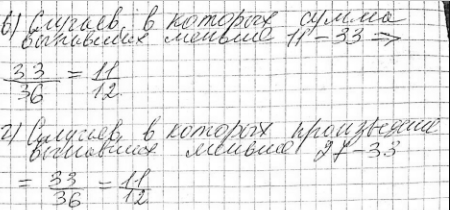 в) Случаев, в которых сумма
выпавших меньше 11 – 33 ⇒
33/36 = 11/12
г) Случаев, в которых произведение
выпавших меньше 27 – 33
= 33/36 = 11/12